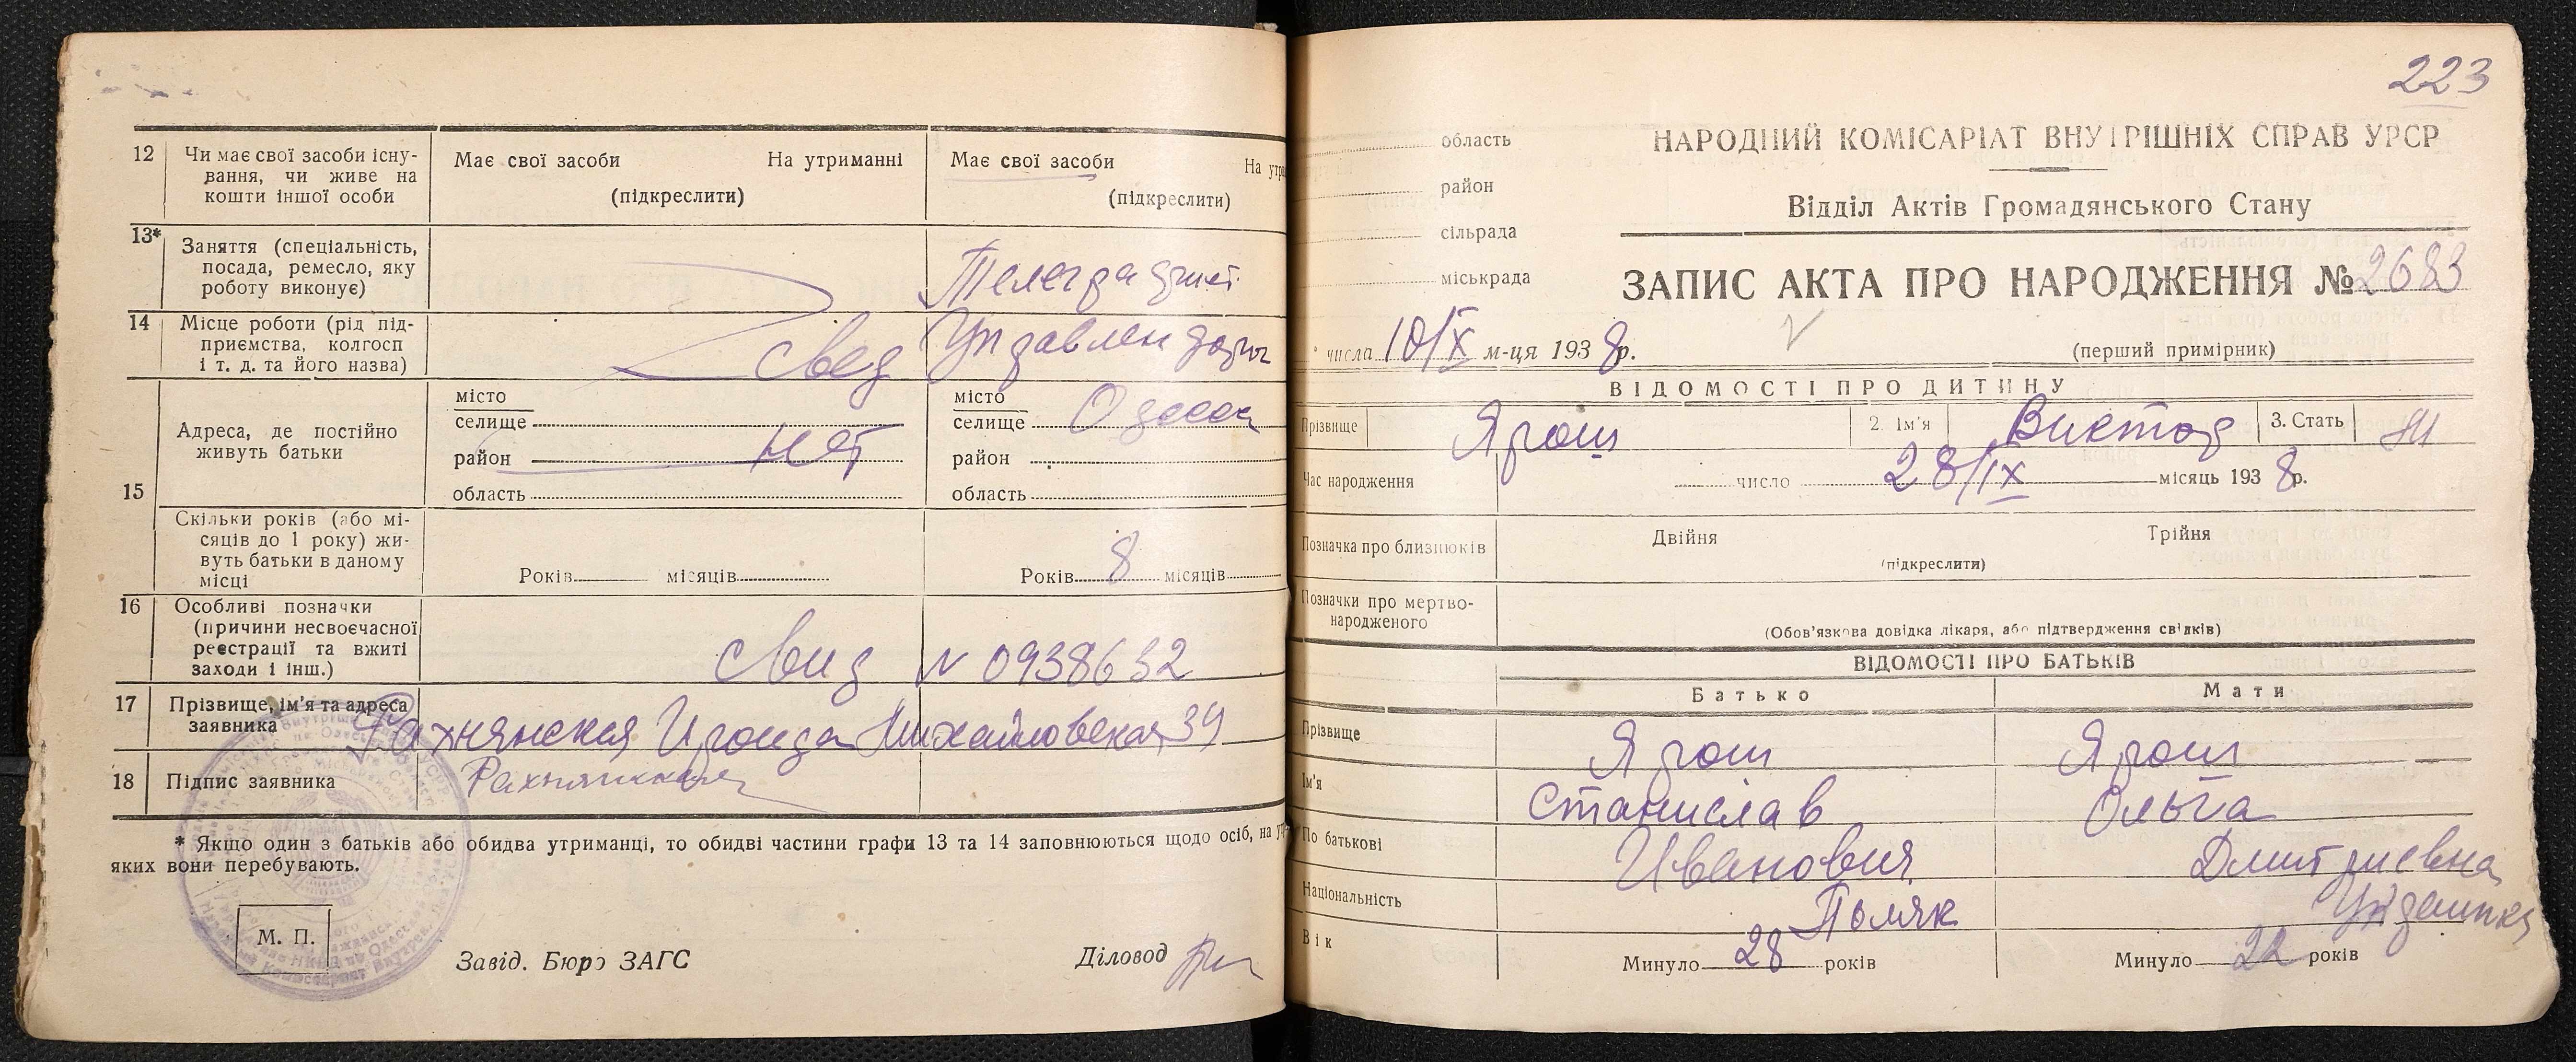 12
Чи має свої засоби існу-
вання, чи живе на
кошти іншої особи
Має свої засоби На утриманні
(підкреслити)
Має свої засоби На утри
(підкреслити)
13*
Заняття (спеціальність,
посада, ремесло, яку
роботу виконує)
Телеграфист
14
Місце роботи (рід під-
приємства, колгосп
і т. д. та його назва)
свед Управлен дороги
15
Адреса, де постійно
живуть батьки
місто
селище
район нет
область
місто
селище Одесса
район
область
Скільки років (або мі-
сяців до 1 року) жи-
вуть батьки в даному
місці
Років місяців
Років 8 місяців
16
Особливі позначки
(причини несвоєчасної
реєстрації та вжиті
заходи і інш.)
Свид N 0938632
17
Прізвище, ім'я та адреса
заявника
Рахнянская Ираида Михайловская, 39
18 Підпис заявника Рахнянская
* Якщо один з батьків або обидва утриманці, то обидві частини графи 13 та 14 заповнюються щодо осіб, на ут
яких вони перебувають.
М. П.
Завід. Бюро ЗАГС
Діловод
223
область
район
сільрада
міськрада
НАРОДНИЙ КОМІСАРІАТ ВНУТРІШНІХ СПРАВ УРСР
Відділ Актів Громадянського Стану
ЗАПИС АКТА ПРО НАРОДЖЕННЯ № 2683
числа 10/IX м-ця 1938 р.
(перший примірник)
ВІДОМОСТІ ПРО ДИТИНУ
Прізвище Ярош 2. Ім'я Виктор 3. Стать М
Час народження число 28/IX місяць 1938 р.
Позначка про близнюків
Двійня Трійня
(підкреслити)
Позначки про мертво-
народженого
(Обов'язкова довідка лікаря, або підтвердження свідків)
ВІДОМОСТІ ПРО БАТЬКІВ
Батько Мати
Прізвище Ярош Ярош
Ім'я Станислав Ольга
По батькові Иванович Дмитриевна
Національність Поляк Украинка
Вік
Минуло 28 років Минуло 22 років